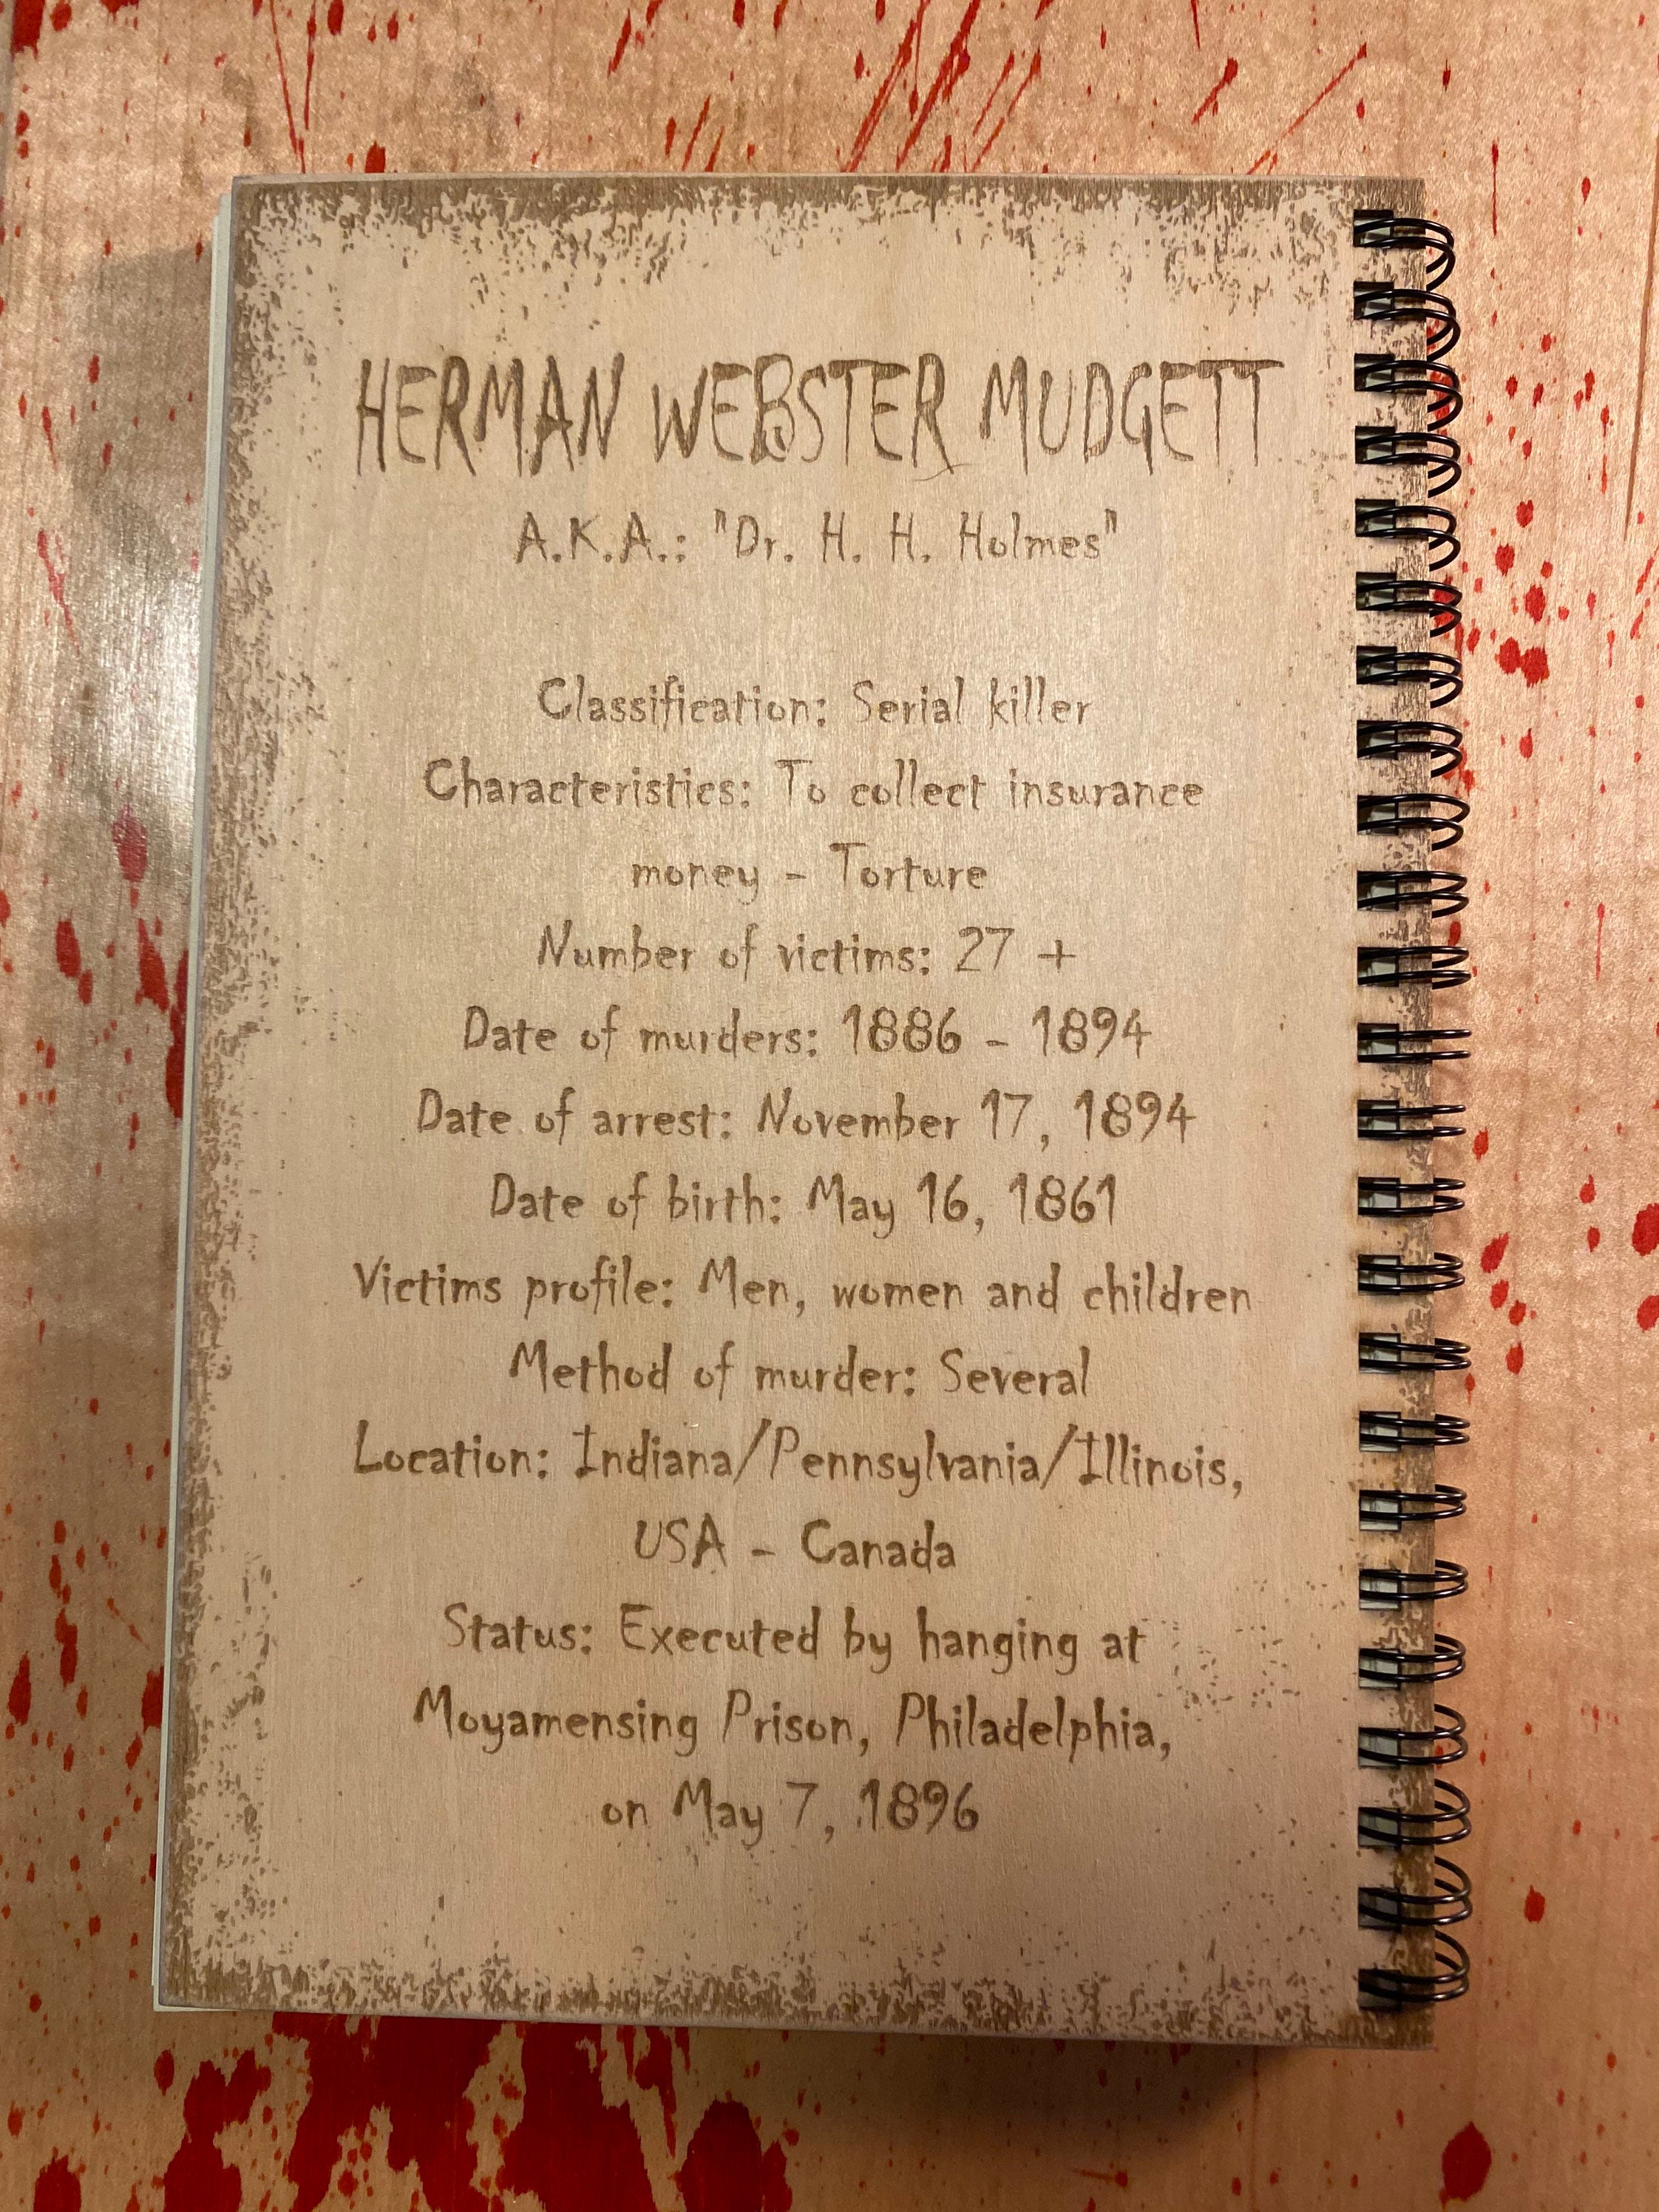 HERMAN WEBSTER MUDGETT
A.K.A.: "Dr. H. H. Holmes"
Classification: Serial killer
Characteristics: To collect insurance
money - Torture
Number of victims: 27 +
Date of murders: 1886 - 1894
Date of arrest: November 17, 1894
Date of birth: May 16, 1861
Victims profile: Men, women and children
Method of murder: Several
Location: Indiana/Pennsylvania/Illinois,
USA - Canada
Status: Executed by hanging at
Moyamensing Prison, Philadelphia,
on May 7, 1896